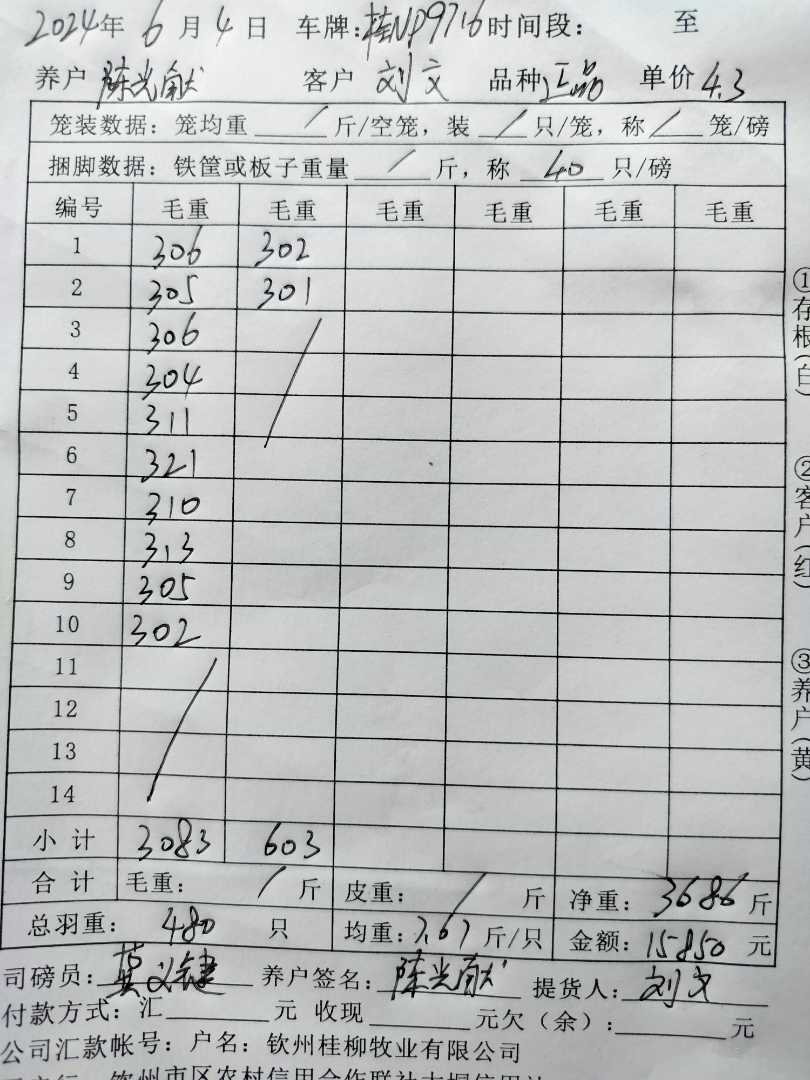 2024年 6 月 4 日 车牌:桂NP9716 时间段: 至
养户 陈光献 客户 刘文 品种 正品 单价 4.3
笼装数据: 笼均重 / 斤/空笼, 装 / 只/笼, 称 / 笼/磅
捆脚数据: 铁筐或板子重量 / 斤, 称 40 只/磅
编号 毛重 毛重 毛重 毛重 毛重 毛重
1 306 302
2 305 301
3 306
4 304
5 311
6 321
7 310
8 313
9 305
10 302
11
12
13
14
小计 3083 603
合计 毛重: / 斤 皮重: / 斤 净重: 3686 斤
总羽重: 480 只 均重: 7.67 斤/只 金额: 15850 元
司磅员: 莫义键 养户签名: 陈光献 提货人: 刘文
付款方式: 汇 元 收现 元欠(余): 元
公司汇款帐号: 户名: 钦州桂柳牧业有限公司
钦州市区农村信用合作联社
①存根(白)
②客户(红)
③养户(黄)